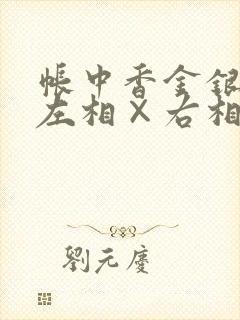 帳中香金銀
左相×右相
劉元慶